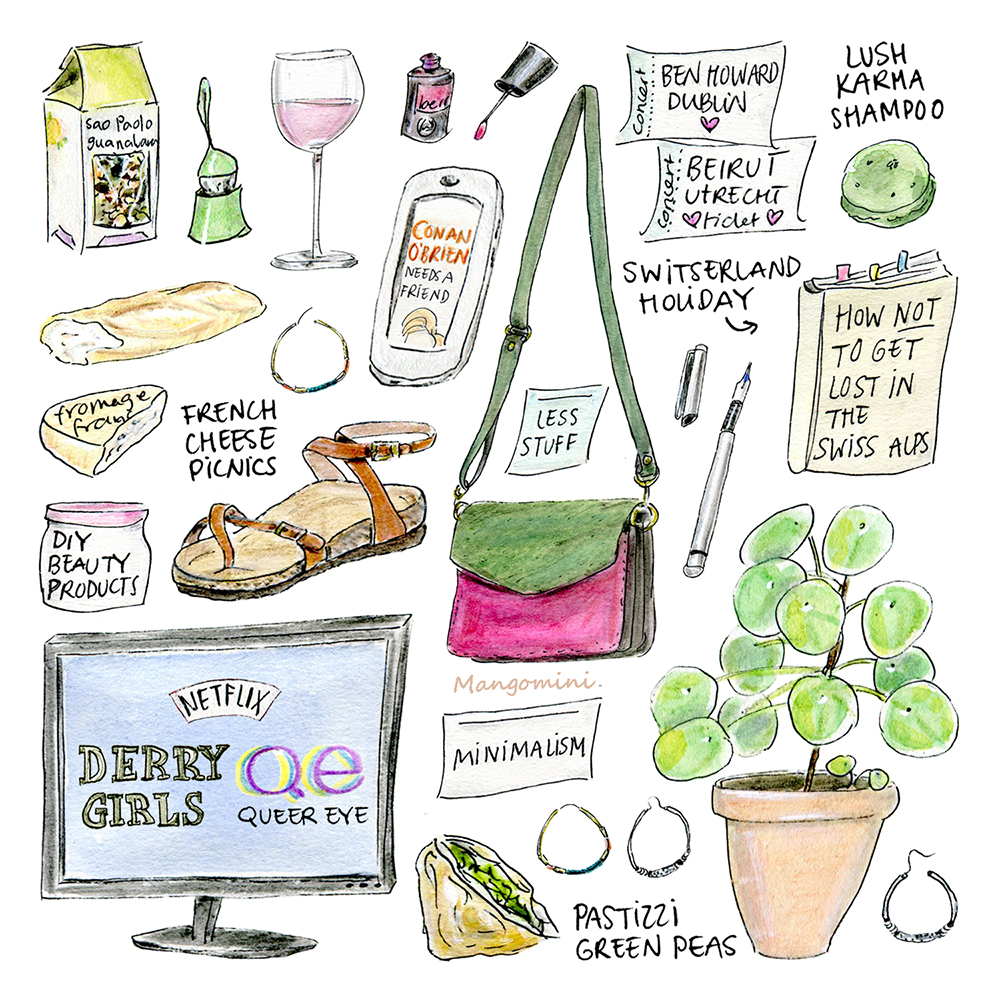 sao Paolo
guanabana
berr
Concert
BEN HOWARD
DUBLIN
Concert
BEIRUT
UTRECHT
ticket
LUSH
KARMA
SHAMPOO
CONAN
O'BRIEN
NEEDS A
FRIEND
SWITSERLAND
HOLIDAY
HOW NOT
TO GET
LOST IN
THE
SWISS ALPS
fromage
frais
FRENCH
CHEESE
PICNICS
LESS
STUFF
DIY
BEAUTY
PRODUCTS
Mangomini.
NETFLIX
DERRY
GIRLS
Qe
QUEER EYE
MINIMALISM
PASTIZZI
GREEN PEAS